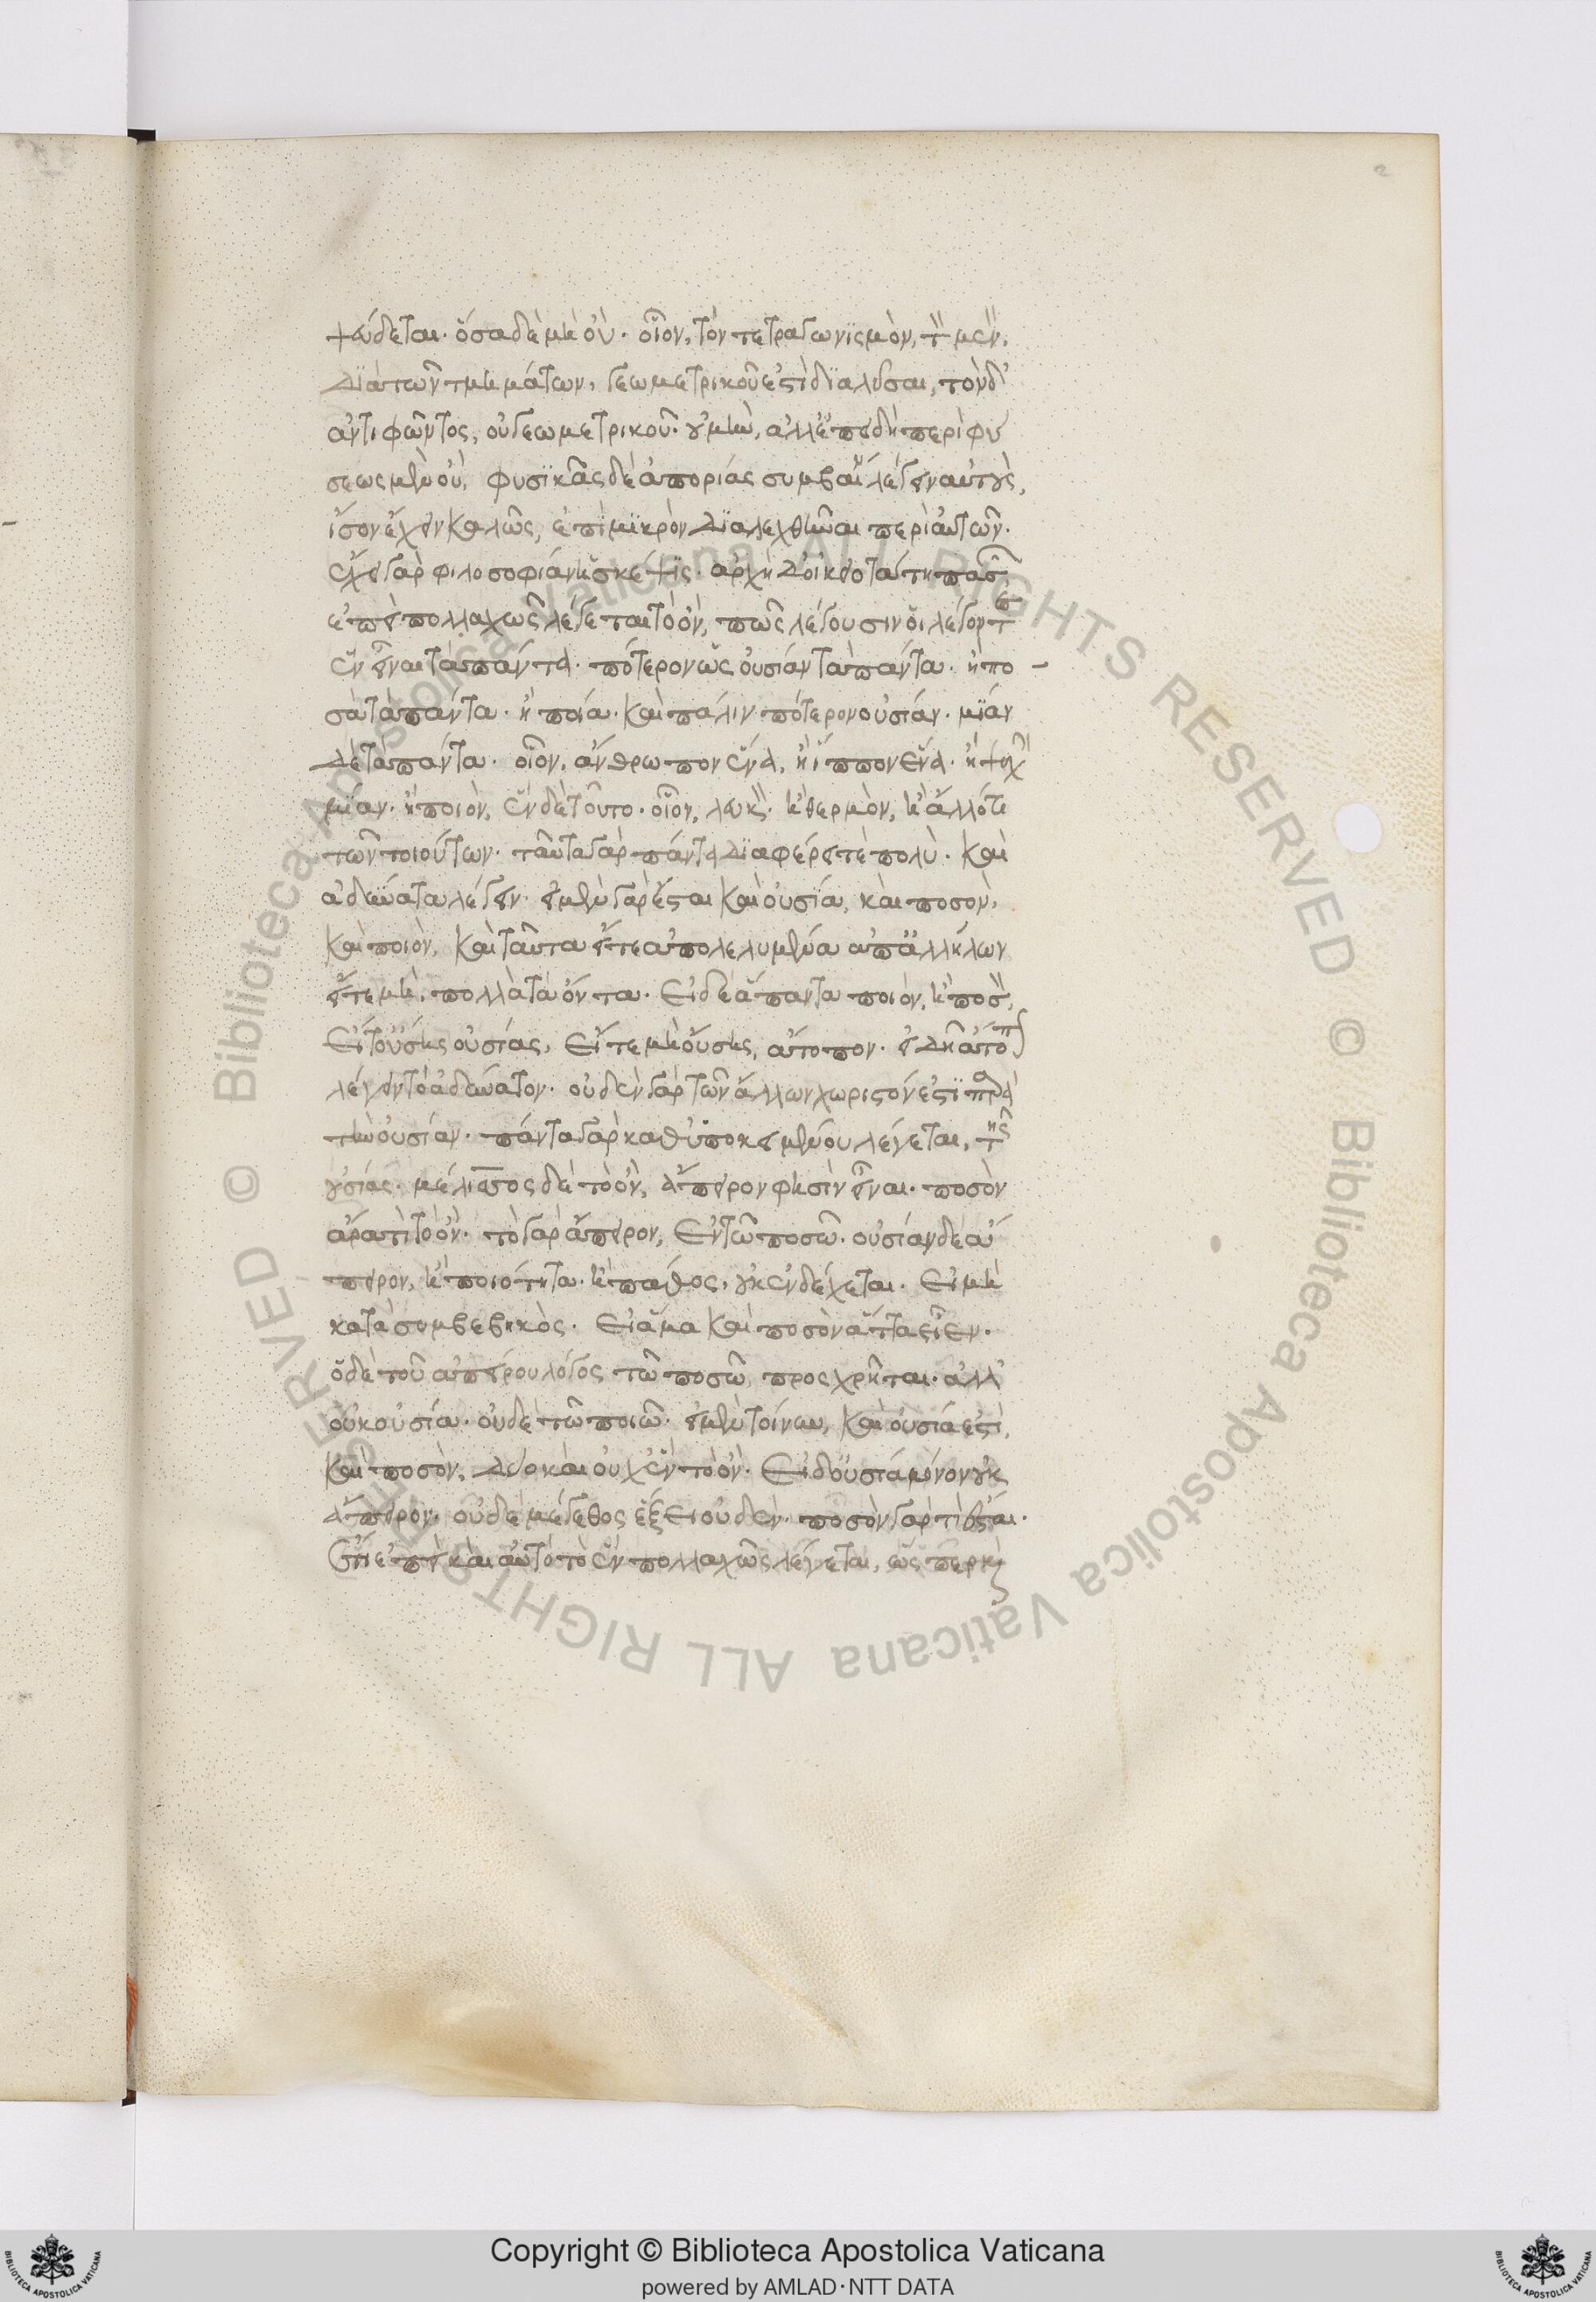 ψεύδεται· ὅσα δὲ μὴ οὔ· οἷον, τὸν τετραγωνϊσμὸν, τὸν μὲν,
Διὰ τῶν τμημάτων, γεωμετρικοῦ ἐστὶ διαλῦσαι, τὸν δ'
ἀντιφῶντος, οὐ γεωμετρικοῦ· οὐ μὴν, ἀλλ' ἐπειδὴ περὶ φύ
σεως μὲν οὔ, φυσϊκὰς δὲ ἀπορίας συμβαίνει λέγειν αὐτοὺς,
ἴσον ἔχειν καλῶς, ἐπὶ μϊκρὸν Διαλεχθῆναι περὶ αὐτῶν·
ἔχει γὰρ φιλοσοφίαν ἡ σκέψις· ἀρχὴ Δ' οἰκειοτάτη πασῶν
ἐπεὶ πολλαχῶς λέγεται τὸ ὄν, πῶς λέγουσιν οἱ λέγοντες
ἓν εἶναι τὰ πάντα· πότερον ὡς οὐσίαν τὰ πάντα· ἢ πο
σὰ τὰ πάντα· ἢ ποιά· καὶ πάλιν πότερον οὐσίαν· μϊάν
Δὲ τὰ πάντα· οἷον, ἄνθρωπον ἕνα, ἢ ἵππον ἕνα· ἢ ψυχὴν
μϊαν· ἢ ποιὸν, ἓν δὲ τοῦτο· οἷον, λευκὸν· ἢ θερμὸν, ἢ ἄλλό τι
τῶν τοιούτων· ταῦτα γὰρ πάντα Διαφέρει τὲ πολὺ· καὶ
ἀδύνατα λέγειν· εἰ μὲν γὰρ ἔσται καὶ οὐσϊα, καὶ ποσὸν,
καὶ ποιὸν, καὶ ταῦτα εἴτε ἀπολελυμένα ἀπ' ἀλλήλων
εἴτε μὴ, πολλὰ τὰ ὄντα· Εἰ δὲ ἅπαντα ποιόν, ἢ ποσὸν,
Εἴτ' οὔσης οὐσίας, Εἴτε μὴ οὔσης, ἄτοπον· εἰ Δεῖ ἄτοπον
λέγειν τὸ ἀδύνατον· οὐδὲν γὰρ τῶν ἄλλων χωριστόν ἐστϊ παρὰ
τὴν οὐσίαν· πάντα γὰρ καθ' ὑποκειμένου λέγεται, τῆς
οὐσίας· μέλισσος δὲ τὸ ὂν, ἄπειρον φησὶν εἶναι· ποσὸν
ἄρα τὶ τὸ ὄν· τὸ γὰρ ἄπειρον, Ἐν τῶ ποσῶ· οὐσίαν δὲ ἄ
πειρον, ἢ ποιότητα· ἢ πάθος, οὐκ ἐνδέχεται· Εἰ μὴ
κατὰ συμβεβηκὸς· Εἰ ἅμα καὶ ποσὸν ἄττα εἶεν·
ὁ δὲ τοῦ ἀπείρου λόγος τῶ ποσῶ προσχρῆται· ἀλλ'
οὐκ οὐσία· οὐδὲ τῶ ποιῶ· εἰ μὲν τοίνυν, καὶ οὐσία ἐστὶ,
καὶ ποσὸν, Δύο καὶ οὐχ ἓν τὸ ὄν· Εἰ δ' οὐσία μόνον οὐκ
ἄπειρον· οὐδὲ μέγεθος ἕξει οὐδὲν· ποσὸν γὰρ τὶ ἔσται·
Ἔτι ἐπεὶ καὶ αὐτὸ τὸ ἓν πολλαχῶς λέγεται, ὥσπερ καὶ